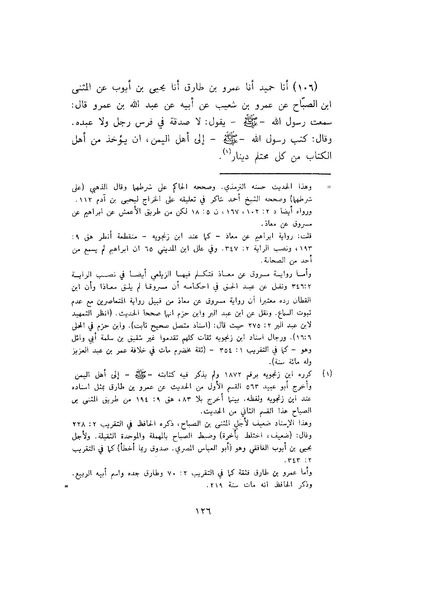 (١٠٦) أنا حميد أنا عمرو بن طارق أنا يحيى بن أيوب عن المثنى
ابن الصبّاح عن عمرو بن شعيب عن أبيه عن عبد الله بن عمرو قال:
سمعت رسول الله -ﷺ- يقول: لا صدقة في فرس رجل ولا عبده.
وقال: كتب رسول الله -ﷺ- إلى أهل اليمن، ان يؤخذ من أهل
الكتاب من كل محتلم دينار(١).
= وهذا الحديث حسنه الترمذي. وصححه الحاكم على شرطهما وقال الذهبي (على
شرطهما) وصححه الشيخ أحمد شاكر في تعليقه على الخراج ليحيى بن آدم ١١٢.
ورواه أيضا د ٢: ١٠٢، ١٦٧، ن ٥: ١٨ لكن من طريق الأعمش عن ابراهيم عن
مسروق عن معاذ.
قلت: رواية ابراهيم عن معاذ - كما عند ابن زنجويه - منقطعة أنظر هق ٩:
١٩٣، ونصب الراية ٢: ٣٤٧. وفي علل ابن المديني ٦٥ ان ابراهيم لم يسمع من
أحد من الصحابة.
وأما رواية مسروق عن معاذ فتكلم فيها الزيلعي أيضا في نصب الراية
٣٤٦:٢ ونقل عن عبد الحق في احكامه أن مسروقا لم يلق معاذا وأن ابن
القطان رده معتبرا أن رواية مسروق عن معاذ من قبيل رواية المتعاصرين مع عدم
ثبوت السماع. ونقل عن ابن عبد البر وابن حزم انهما صححا الحديث. (انظر التمهيد
لابن عبد البر ٢: ٢٧٥ حيث قال: (اسناد متصل صحيح ثابت). وابن حزم في المحلى
١٦:٦). ورجال اسناد ابن زنجويه ثقات كلهم تقدموا غير شقيق بن سلمة أبي وائل
وهو - كما في التقريب ١: ٣٥٤ - (ثقة مخضرم مات في خلافة عمر بن عبد العزيز
وله مائة سنة).
(١) كرره ابن زنجويه برقم ١٨٧٢ ولم يذكر فيه كتابته -ﷺ- إلى أهل اليمن
وأخرج أبو عبيد ٥٦٣ القسم الأول من الحديث عن عمرو بن طارق بمثل اسناده
عند ابن زنجويه ولفظه. بينما أخرج بلا ٨٣، هق ٩: ١٩٤ من طريق المثنى بن
الصباح هذا القسم الثاني من الحديث.
وهذا الإسناد ضعيف لأجل المثنى بن الصباح، ذكره الحافظ في التقريب ٢: ٢٢٨
وقال: (ضعيف، اختلط بأخرة) وضبط الصباح بالمهملة والموحدة الثقيلة. ولأجل
يحيى بن أيوب الغافقي وهو (أبو العباس المصري. صدوق ربما أخطأ) كما في التقريب
٢: ٣٤٣.
وأما عمرو بن طارق فثقة كما في التقريب ٢: ٧٠ وطارق جده واسم أبيه الربيع.
وذكر الحافظ انه مات سنة ٢١٩.
١٢٦